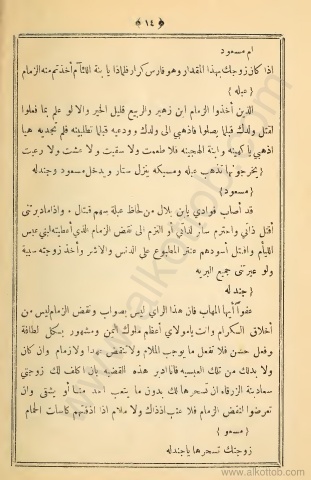 ﴿ ١٤ ﴾
ام مسعود
اذا كان زوجك بهذا المقدار وهو فارس كرار فلماذا يا بنة اللئآم أخذتم منه الزمام
{ عبله }
الذين أخذوا الزمام ابن زهير والربيع قليل الخير والالو علم بما فعلوا
لقتل ولدك قبلما يصلوا فاذهبي الى ولدك وودعيه قبلما تطلبينه فلم تجديه هيا
اذهبي يا كهينه وابنة الهجينه فلا طعمت ولا سقيت ولا عشت ولا رعيت
{ يخرجونها تذهب عبله ومسيكه ينزل ستار ويدخل مسعود وجندله
{ مسعود }
قد أصاب فوادي يابن بلال من لحاظ عبلة سهم قتال واذا ما دبرتنى
أقتل ذاتي واحترم سائر لذاتي أو التزم الى نقض الزمام الذي أعطيته لبني عبس
اللئام وافتل أسودهم عنتر المطبوع على الدنس والاشر وأخذ زوجته سبية
ولو عيرتني جميع البريه
{ جندله }
عفواً أيها المهاب فان هذا الراي ليس بصواب ونقض الزمام ليس من
أخلاق الكرام وانت يا مولاي أعظم ملوك اليمن ومشهور بكل لطافة
وفعل حسن فلا تفعل ما يوجب الملام ولا تنقض عهدا ولا زمام وان كان
ولا بد لك من تلك العبسيه فانا ادبر هذه القضيه بان اكلف لك زوجتي
سعاد بنة الزرقاء ان تسحرها لك بدون ما يتعب احد منا أو يشقى وان
تعرضوا لنقض الزمام فلا عتب اذ ذاك ولا ملام اذا اذقتهم كاسات الحمام
{ مسعو }
زوجتك تسحرها يا جندله
www.alkottob.com
http://www.alkottob.com